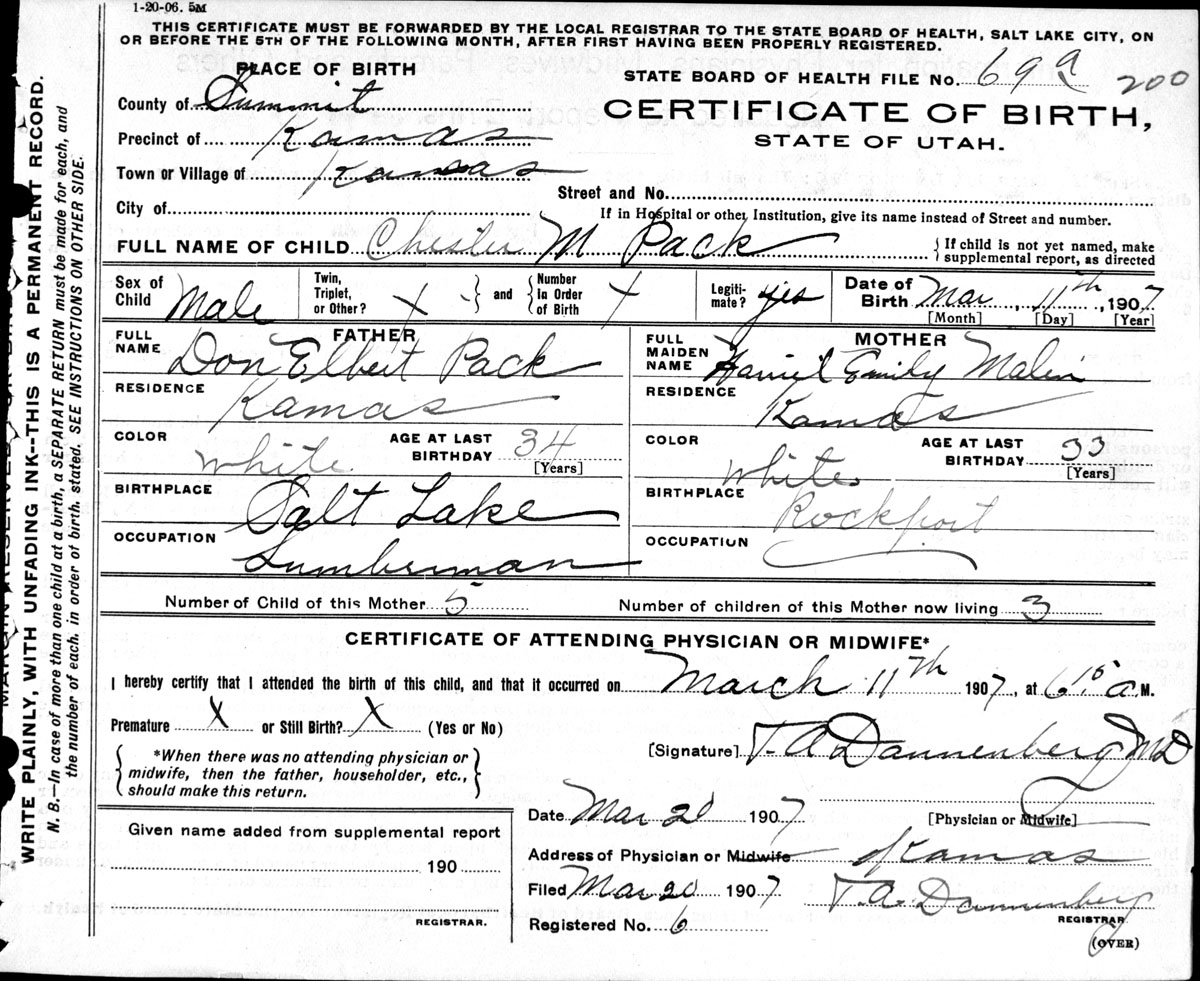 1-20-06. 5M
THIS CERTIFICATE MUST BE FORWARDED BY THE LOCAL REGISTRAR TO THE STATE BOARD OF HEALTH, SALT LAKE CITY, ON
OR BEFORE THE 5TH OF THE FOLLOWING MONTH, AFTER FIRST HAVING BEEN PROPERLY REGISTERED.
PLACE OF BIRTH
STATE BOARD OF HEALTH FILE No. 69a 200
County of Summit
CERTIFICATE OF BIRTH,
Precinct of Kamas
STATE OF UTAH.
Town or Village of Kamas
Street and No.
City of
If in Hospital or other Institution, give its name instead of Street and number.
FULL NAME OF CHILD Chester M Pack
{ If child is not yet named, make
supplemental report, as directed
Sex of Child Male
Twin, Triplet, or Other? X } and { Number In Order of Birth X
Legitimate? yes
Date of Birth Mar, 11th, 1907
[Month] [Day] [Year]
FATHER
FULL NAME Don Elbert Pack
RESIDENCE Kamas
COLOR White
AGE AT LAST BIRTHDAY 34
[Years]
BIRTHPLACE Salt Lake
OCCUPATION Lumberman
MOTHER
FULL MAIDEN NAME Harriet Emily Malin
RESIDENCE Kamas
COLOR White
AGE AT LAST BIRTHDAY 33
[Years]
BIRTHPLACE Rockport
OCCUPATION
Number of Child of this Mother 5
Number of children of this Mother now living 3
CERTIFICATE OF ATTENDING PHYSICIAN OR MIDWIFE*
I hereby certify that I attended the birth of this child, and that it occurred on March 11th 1907, at 6 15 a M.
Premature X or Still Birth? X (Yes or No)
[Signature] T. A Dannenberg MD
{ *When there was no attending physician or
midwife, then the father, householder, etc.,
should make this return. }
[Physician or Midwife]
Date Mar 20 1907
Address of Physician or Midwife Kamas
Filed Mar 20 1907
T. A. Dannenberg
REGISTRAR.
Registered No. 6
(OVER)
Given name added from supplemental report
190
REGISTRAR.
WRITE PLAINLY, WITH UNFADING INK--THIS IS A PERMANENT RECORD.
N. B.—In case of more than one child at a birth, a SEPARATE RETURN must be made for each, and
the number of each, in order of birth, stated. SEE INSTRUCTIONS ON OTHER SIDE.